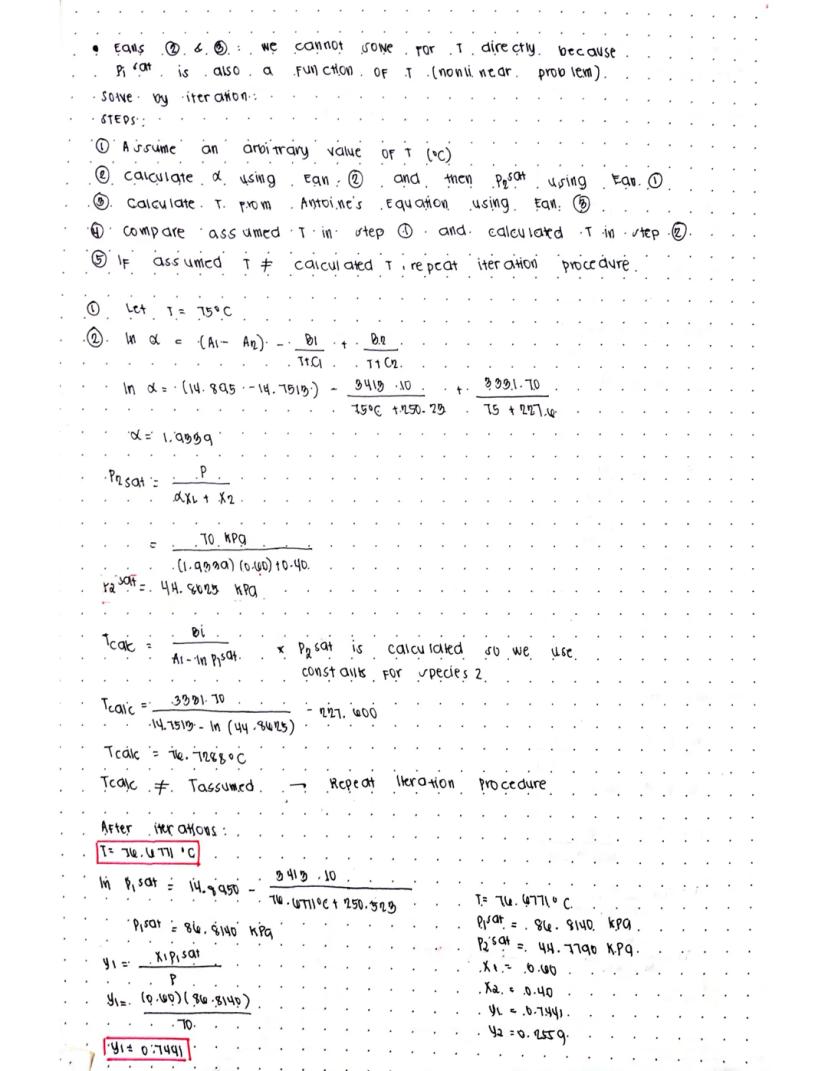 • Eqns ② & ③: we cannot solve for T directly because
P₁ sat is also a function of T (nonlinear problem).
solve by iteration:
STEPS:
① Assume an arbitrary value of T (°C)
② calculate α using Eqn. ② and then P₂sat using Eqn. ①
③ calculate T from Antoine's Equation using Eqn. ③
④ compare assumed T in step ① and calculated T in step ②.
⑤ If assumed T ≠ calculated T, repeat iteration procedure.
① Let T = 75°C
② ln α = (A1 - A2) - B1/T+C1 + B2/T+C2
ln α = (14.895 - 14.7513) - 3413.10/75°C + 250.23 + 3331.70/75 + 227.6
α = 1.9339
P2sat = P/αx1 + x2
= 70 kPa/(1.9339)(0.60)+0.40
P2sat = 44.8625 kPa
Tcalc = Bi/Ai - ln Pisat * P2sat is calculated so we use
constants for species 2
Tcalc = 3331.70/14.7513 - ln (44.8625) - 227.600
Tcalc = 76.7288°C
Tcalc ≠ Tassumed → Repeat Iteration Procedure
After iterations:
T= 76.6771 °C
ln P1sat = 14.8950 - 3413.10/76.6771°C + 250.523
P1sat = 86.8140 kPa
y1 = x1P1sat/P
y1= (0.60)(86.8140)/70
y1= 0.7441
T= 76.6771°C
P1sat = 86.8140 kPa
P2sat = 44.7790 kPa
x1 = 0.60
x2 = 0.40
y1 = 0.7441
y2 = 0.2559